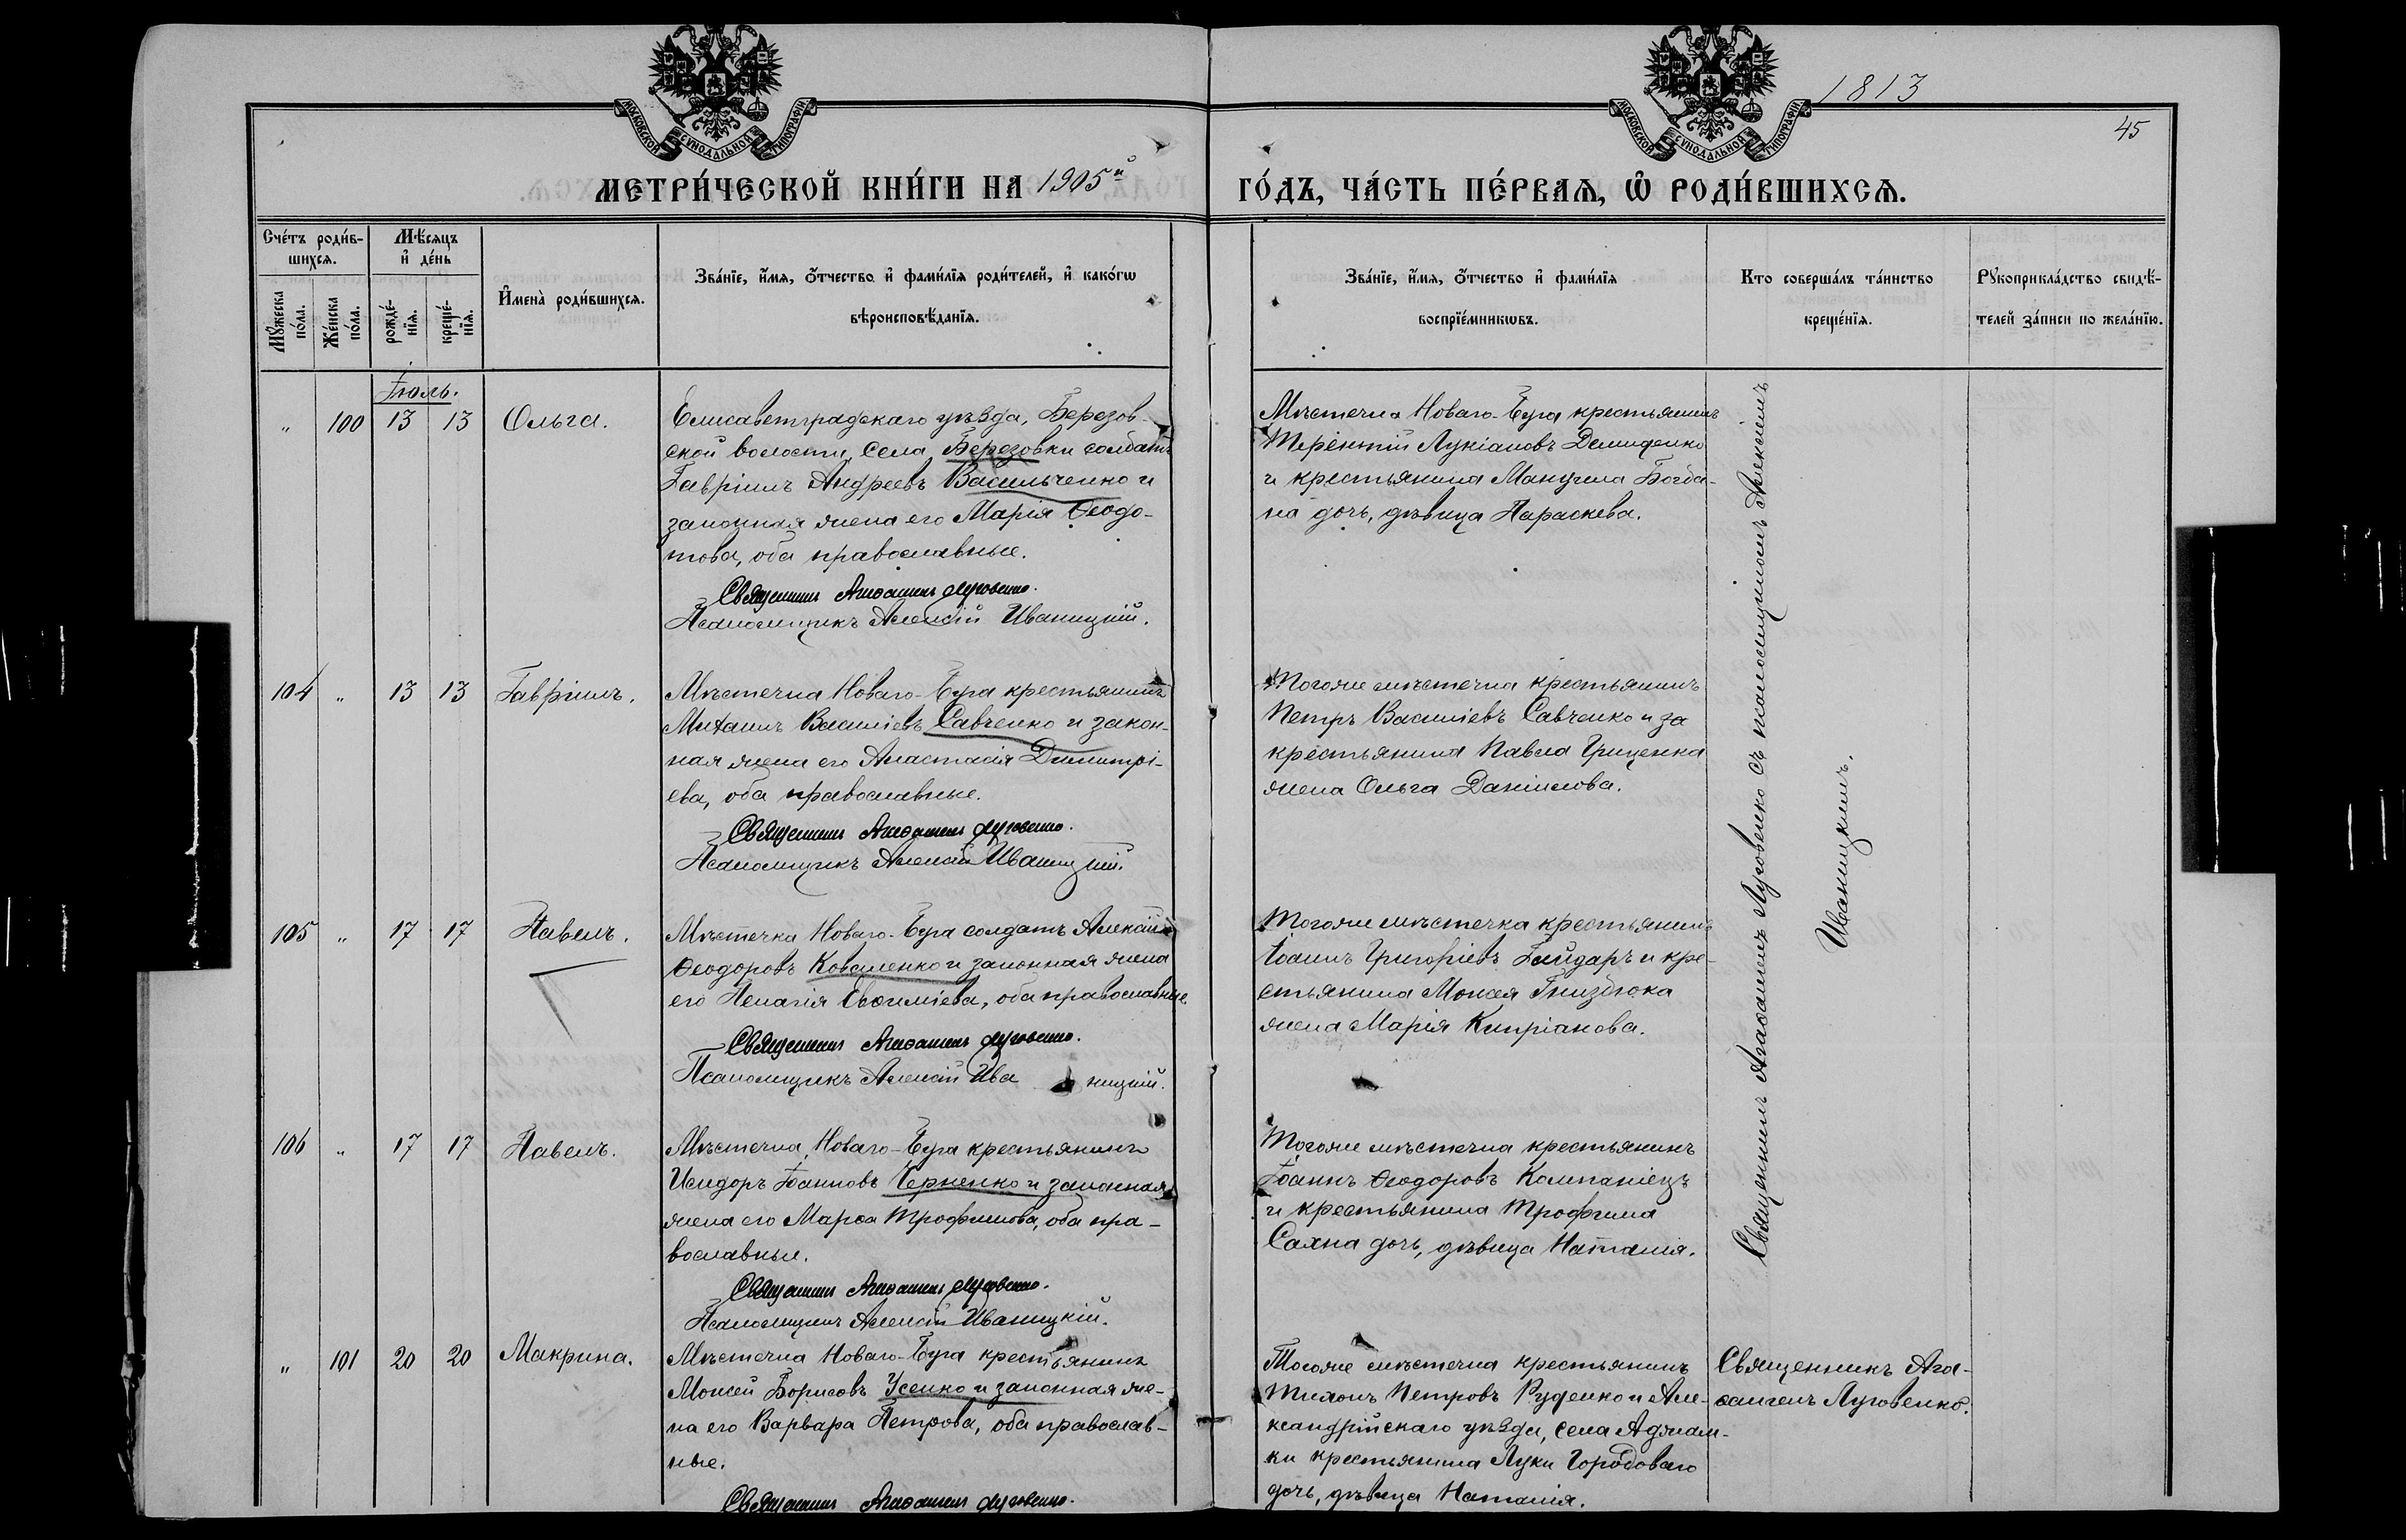 1813
45
МОСКОВСКОЙ СѴНОДАЛЬНОЙ ТИПОГРАФІИ
МОСКОВСКОЙ СѴНОДАЛЬНОЙ ТИПОГРАФІИ
МЕТРИ́ЧЕСКОЙ КНИ́ГИ НА 1905й ГО́ДЪ, ЧА́СТЬ ПЕ́РВАѦ, Ѡ РОДИ́ВШИХСѦ.
Сче́тъ роди́в-
шихсѧ.
Мꙋжеска по́ла.
Же́нска по́ла.
Мѣ́сѧцъ
и҆ де́нь
рожде́-
нїѧ.
креще́-
нїѧ.
И҆мена̀ роди́вшихсѧ.
Зва́нїе, и҆́мѧ, ѻ҆́тчество и҆ фами́лїѧ роди́телей, и҆ како́гѡ
вѣроисповѣ́данїѧ.
Зва́нїе, и҆́мѧ, ѻ҆́тчество и҆ фами́лїѧ
воспрїе́мникѡвъ.
Кто соверша́лъ та́инство
креще́нїѧ.
Рꙋкоприкла́дство свидѣ́-
телей за́писи по жела́нїю.
Іюль.
„ 100 13 13 Ольга.
Елисаветградскаго уѣзда, Березов-
ской волости, села Березовки солдатъ
Гавріилъ Андреевъ Васильченко и
законная жена его Марія Ѳеодо-
това, оба православные.
Священникъ Агаѳангелъ Луговенко.
Псаломщикъ Алексій Иваницкій.
Мѣстечка Новаго-Буга крестьянинъ
Терентій Лукіановъ Демиденко
и крестьянина Мануила Богда-
на дочь, дѣвица Параскева.
104 „ 13 13 Гавріилъ.
Мѣстечка Новаго-Буга крестьянинъ
Михаилъ Василіевъ Савченко и закон-
ная жена его Анастасія Димитрі-
ева, оба православные.
Священникъ Агаѳангелъ Луговенко.
Псаломщикъ Алексій Иваницкій.
Тогоже мѣстечка крестьянинъ
Петръ Василіевъ Савченко и за
крестьянина Павла Гриценка
жена Ольга Даніилова.
105 „ 17 17 Павелъ.
Мѣстечка Новаго-Буга солдатъ Алексій
Ѳеодоровъ Коваленко и законная жена
его Пелагія Евѳиміева, оба православные.
Священникъ Агаѳангелъ Луговенко.
Псаломщикъ Алексій Иваницкій.
Тогоже мѣстечка крестьянинъ
Іоаннъ Григоріевъ Гайдаръ и кре-
стьянина Моисея Гниздюка
жена Марія Кипріанова.
106 „ 17 17 Павелъ.
Мѣстечка Новаго-Буга крестьянинъ
Исидоръ Іоанновъ Черненко и законная
жена его Марѳа Трофимова, оба пра-
вославные.
Священникъ Агаѳангелъ Луговенко.
Псаломщикъ Алексій Иваницкій.
Тогоже мѣстечка крестьянинъ
Іоаннъ Ѳеодоровъ Компаніецъ
и крестьянина Трофима
Саяна дочь, дѣвица Наталія.
Священникъ Агаѳангелъ Луговенко съ псаломщикомъ Алексіемъ
Иваницкимъ.
„ 101 20 20 Макрина.
Мѣстечка Новаго-Буга крестьянинъ
Моисей Борисовъ Усенко и законная же-
на его Варвара Петрова, оба православ-
ные.
Священникъ Агаѳангелъ Луговенко.
Тогоже мѣстечка крестьянинъ
Тихонъ Петровъ Руденко и Але-
ксандрійскаго уѣзда, села Аджам-
ки крестьянина Луки Городоваго
дочь, дѣвица Наталія.
Священникъ Ага-
ѳангелъ Луговенко.